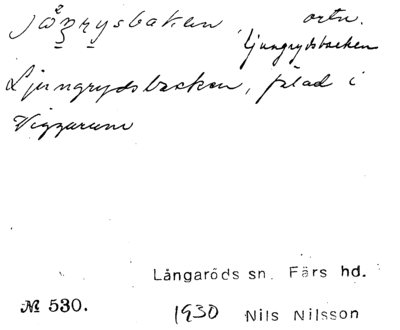 ortn.
Ljungrydsbacken
Ljungrydsbacken, plad i
Viggarum
Långaröds sn. Färs hd.
№ 530. 1930 Nils Nilsson